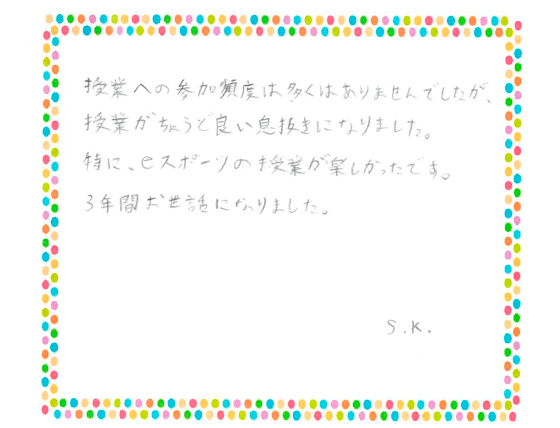 授業への参加頻度は多くはありませんでしたが、
授業がちょうど良い息抜きになりました。
特に、eスポーツの授業が楽しかったです。
3年間お世話になりました。
S.K.